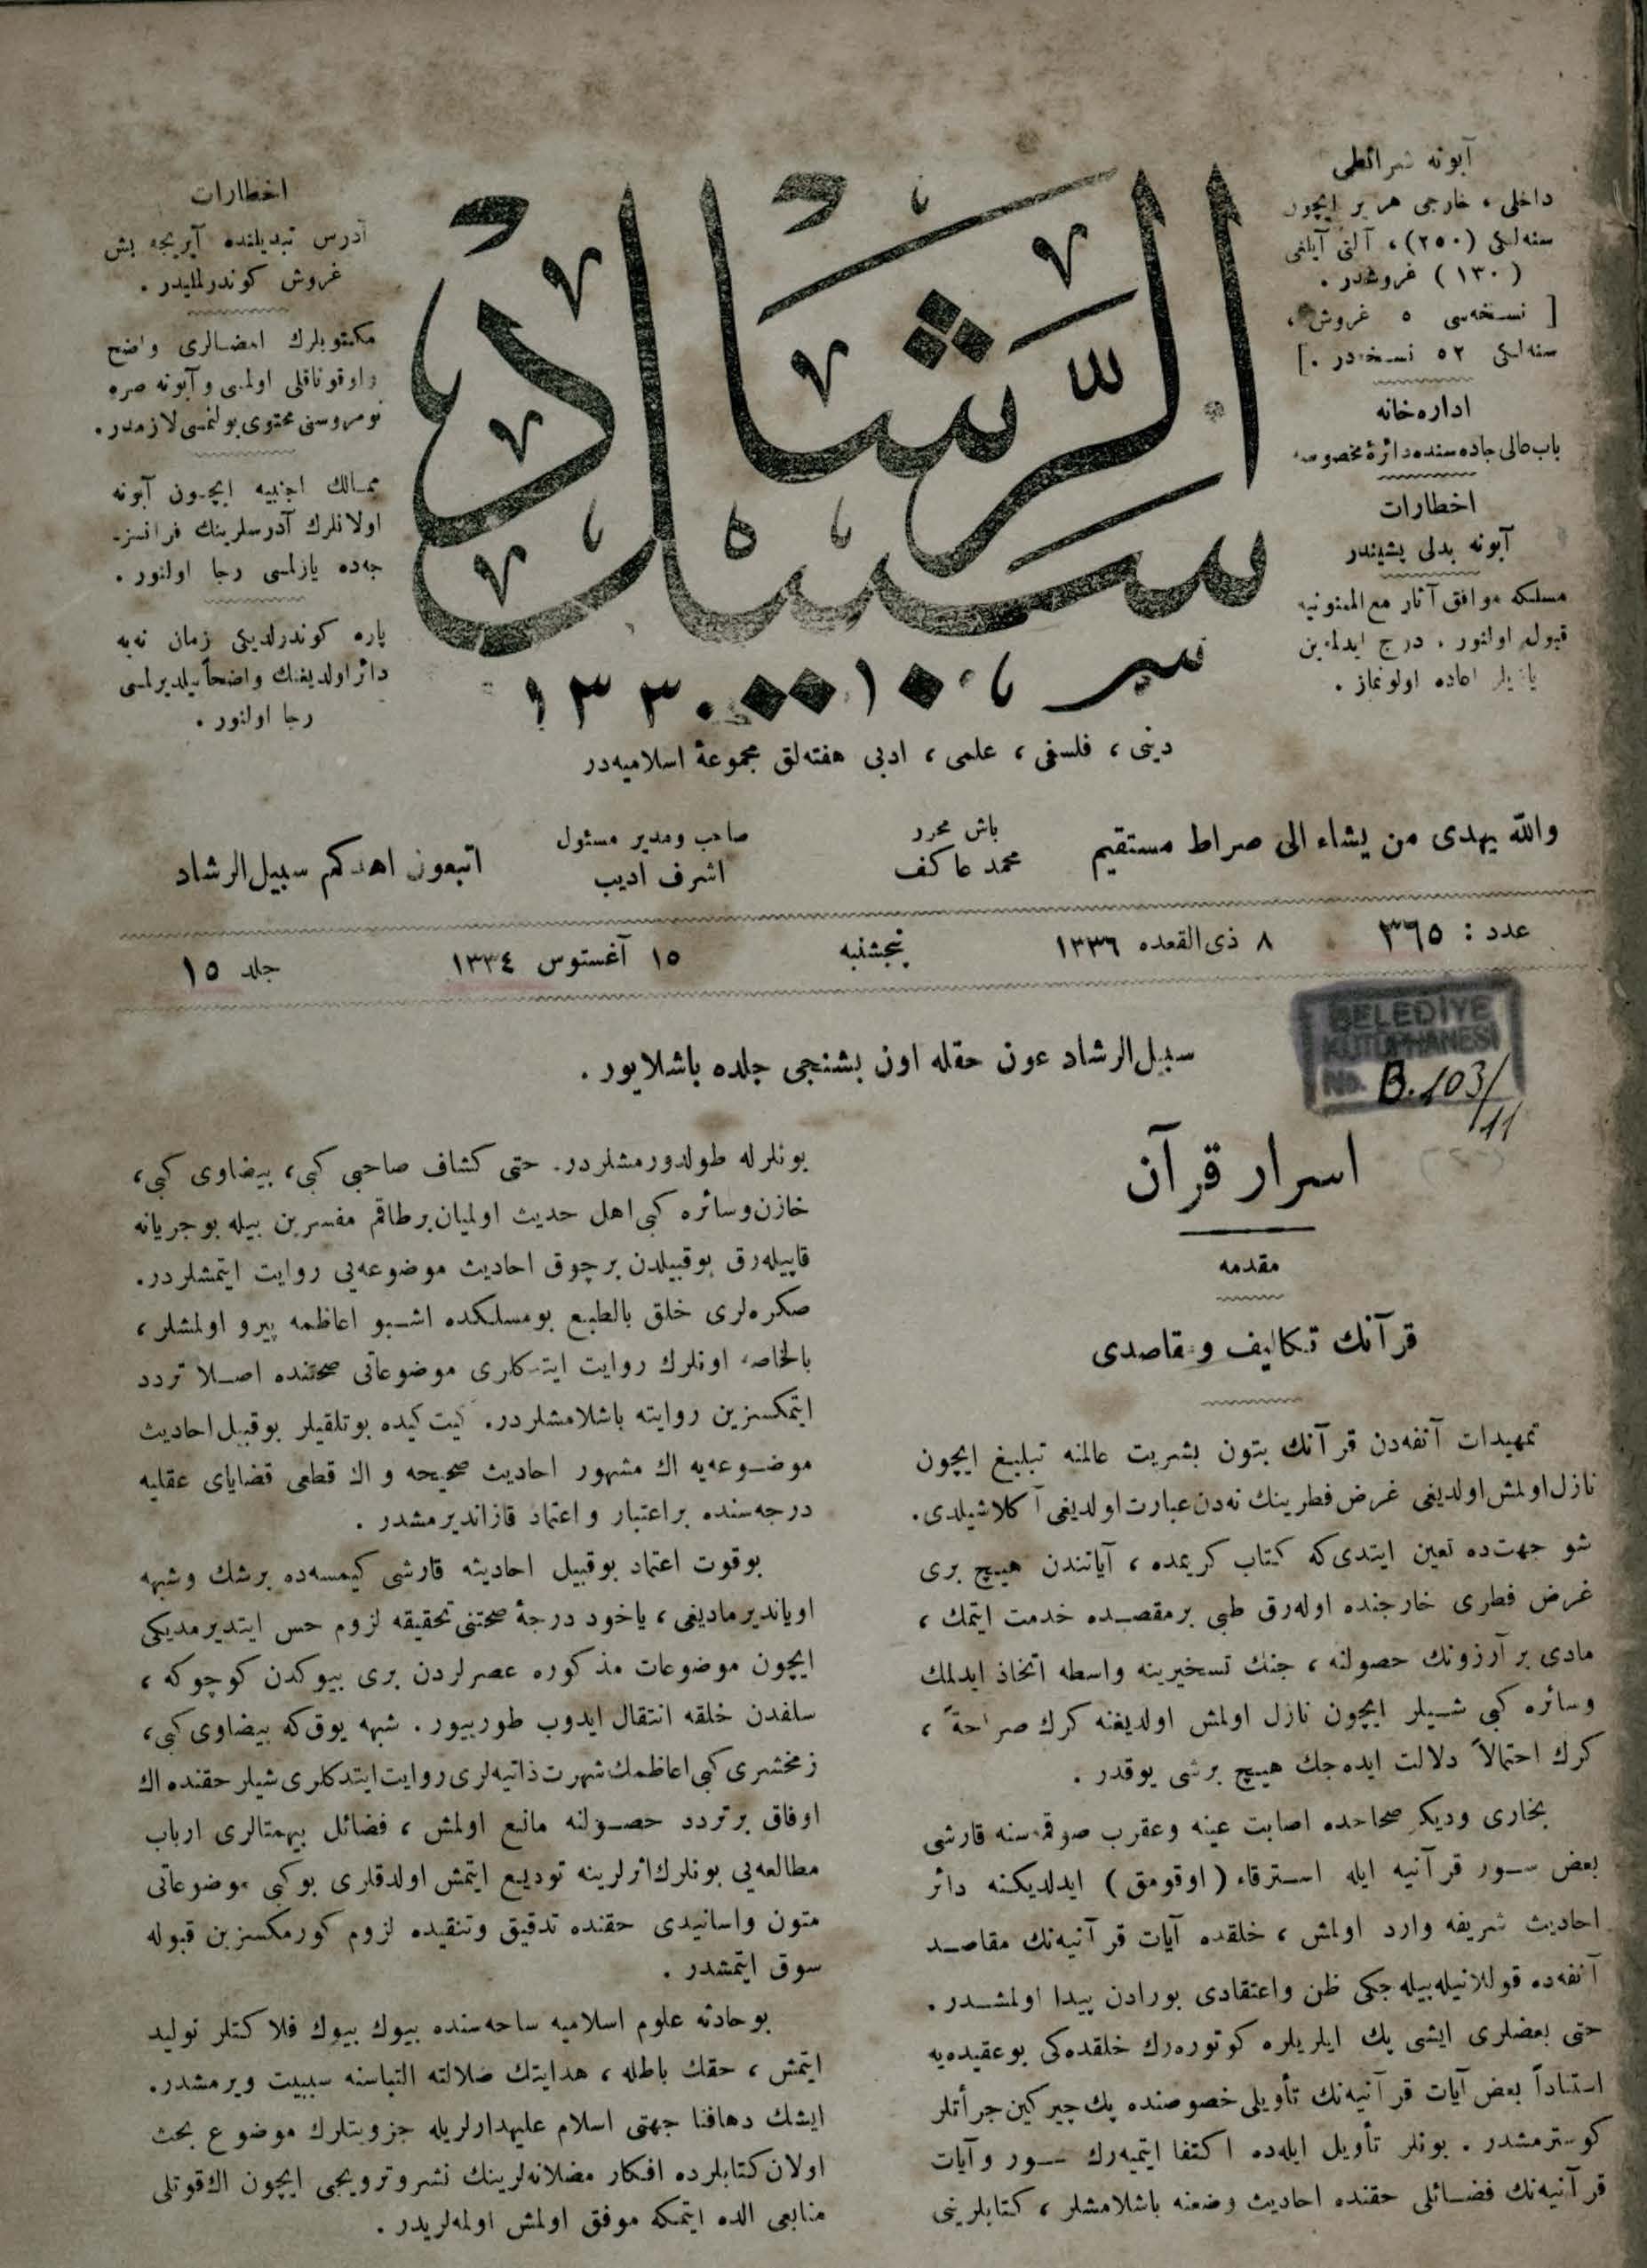 آبونه شرائطی
داخلی ، خارجی هر یر ایچون
سنه‌لکی (۲۵۰)، آلتی آیلغی
(۱۳۰) غروشدر .
[ نسخه‌سی ۵ غروش ،
سنه‌لکی ۵۲ نسخه‌در .]
اداره‌خانه
باب عالی جاده‌سنده دائرهٔ مخصوصه
اخطارات
آبونه بدلی پشیندر
مسلکه موافق آثار مع الممنونیه
قبول اولنور . درج ایدلمه‌ین
یازیلر اعاده اولونماز .
سبیل الرشاد
۱۳۳۰
اخطارات
آدرس تبدیلنده آیریجه بش
غروش کوندرلملیدر .
مکتوبلرك امضالری واضح
واوقوناقلی اولمسی و آبونه صره
نومروسنی محتوی بولنمسی لازمدر .
ممالك اجنبیه ایچون آبونه
اولانلرك آدرسلرینك فرانسز-
جه‌ده یازلمسی رجا اولنور .
پاره کوندرلدیکی زمان نه‌یه
دائر اولدیغنك واضحاً بیلدیرلمسی
رجا اولنور .
دینی ، فلسفی ، علمی ، ادبی هفته‌لق مجموعهٔ اسلامیه‌در
والله یهدی من یشاء الی صراط مستقیم
باش محرر
محمد عاکف
صاحب ومدیر مسئول
اشرف ادیب
اتبعون اهدکم سبیل الرشاد
عدد : ۳٦۵
۸ ذی القعده ۱۳۳٦
پنجشنبه
۱۵ آغستوس ۱۳۳٤
جلد ۱۵
BELEDİYE
KÜTÜPHANESİ
No. B.103/
11
سبیل الرشاد عون حقله اون بشنجی جلده باشلایور .
اسرار قرآن
مقدمه
قرآنك تکالیف و مقاصدی
تمهیدات آنفه‌دن قرآنك بتون بشریت عالمنه تبلیغ ایچون
نازل اولمش اولدیغی غرض فطرینك نه‌دن عبارت اولدیغی آکلاشیلدی.
شو جهت‌ده تعین ایتدی که کتاب کریمده ، آیاتندن هیچ بری
غرض فطری خارجنده اوله‌رق طبی بر مقصده خدمت ایتمك ،
مادی بر آرزونك حصولنه ، جنك تسخیرینه واسطه اتخاذ ایدلمك
وسائره کبی شیلر ایچون نازل اولمش اولدیغنه كرك صراحةً ،
كرك احتمالاً دلالت ایده‌جك هیچ برشی یوقدر .
بخاری ودیکر صحاحده اصابت عینه وعقرب صوقمه‌سنه قارشی
بعض سور قرآنیه ایله استرقاء (اوقومق) ایدلدیکنه دائر
احادیث شریفه وارد اولمش ، خلقده آیات قرآنیه‌نك مقاصد
آنفه‌ده قوللانیله‌بیله‌جکی ظن واعتقادی بورادن پیدا اولمشدر .
حتی بعضلری ایشی پك ایلریلره کوتوره‌رك خلقده‌کی بو عقیده‌یه
استناداً بعض آیات قرآنیه‌نك تأویلی خصوصنده پك چیرکین جرأتلر
کوسترمشدر . بونلر تأویل ایله‌ده اکتفا ایتمیه‌رك سور وآیات
قرآنیه‌نك فضائلی حقنده احادیث وضعنه باشلامشلر ، کتابلرینی
بونلرله طولدورمشلردر. حتی کشاف صاحبی کبی، بیضاوی کبی،
خازن وسائره کبی اهل حدیث اولمیان برطاقم مفسرین بیله بو جریانه
قاپیله‌رق بوقبیلدن برچوق احادیث موضوعه‌یی روایت ایتمشلردر.
صکره‌لری خلق بالطبع بومسلکده اشبو اعاظمه پیرو اولمشلر ،
بالخاصه اونلرك روایت ایتدکلری موضوعاتی صحتنده اصلا تردد
ایتمکسزین روایته باشلامشلردر. کیت کیده بوتلقیلر بوقبیل احادیث
موضوعه‌یه اك مشهور احادیث صحیحه و اك قطعی قضایای عقلیه
درجه‌سنده براعتبار و اعتماد قازاندیرمشدر .
بوقوت اعتماد بوقبیل احادیثه قارشی کیمسه‌ده برشك وشبهه
اویاندیرمادیغی ، یاخود درجهٔ صحتنی تحقیقه لزوم حس ایتدیرمدیکی
ایچون موضوعات مذکوره عصرلردن بری بیوکدن کوچوکه ،
سلفدن خلفه انتقال ایدوب طوریور . شبهه یوق که بیضاوی کبی،
زمخشری کبی اعاظمك شهرت ذاتیه‌لری روایت ایتدکلری شیلر حقنده اك
اوفاق برتردد حصولنه مانع اولمش ، فضائل بیهمتالری ارباب
مطالعه‌یی بونلرك اثرلرینه تودیع ایتمش اولدقلری بوکبی موضوعاتی
متون واسانیدی حقنده تدقیق وتنقیده لزوم کورمکسزین قبوله
سوق ایتمشدر .
بو حادثه علوم اسلامیه ساحه‌سنده بیوك بیوك فلاکتلر تولید
ایتمش ، حقك باطله ، هدایتك ضلالته التباسنه سببیت ویرمشدر.
ایشك دهافنا جهتی اسلام علیهدارلریله جزویتلرك موضوع بحث
اولان کتابلرده افکار مضلانه‌لرینك نشر وترویجی ایچون اك قوتلی
منابعی الده ایتمکه موفق اولمش اولمه‌لریدر .